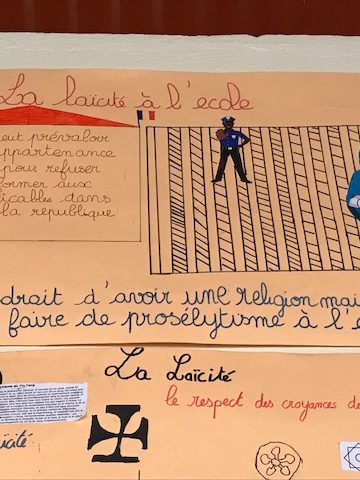 La laïcité à l'ecole
eut prévaloir
appartenance
pour refuser
former aux
licables dans
la république
droit d'avoir une religion mai
faire de prosélytisme à l'é
La Laïcité
le respect des croyances de
ïcité